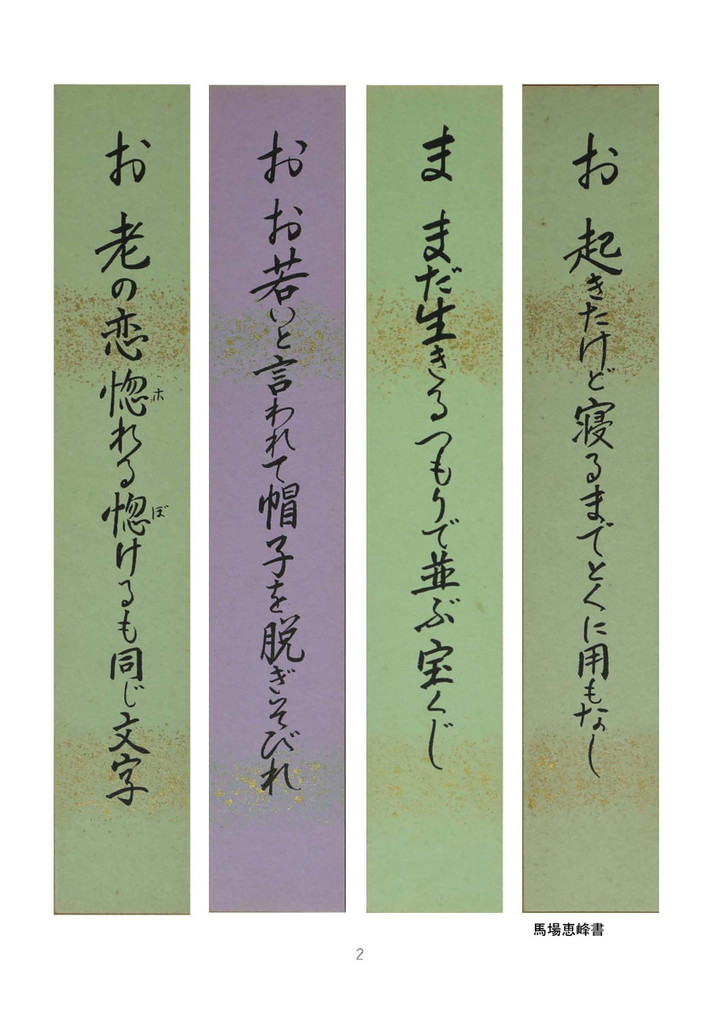 お 起きたけど寝るまでとくに用もなし
ま まだ生きるつもりで並ぶ宝くじ
お お若いと言われて帽子を脱ぎそびれ
お 老の恋惚れる惚けるも同じ文字
ホ
ぼ
馬場恵峰書
2